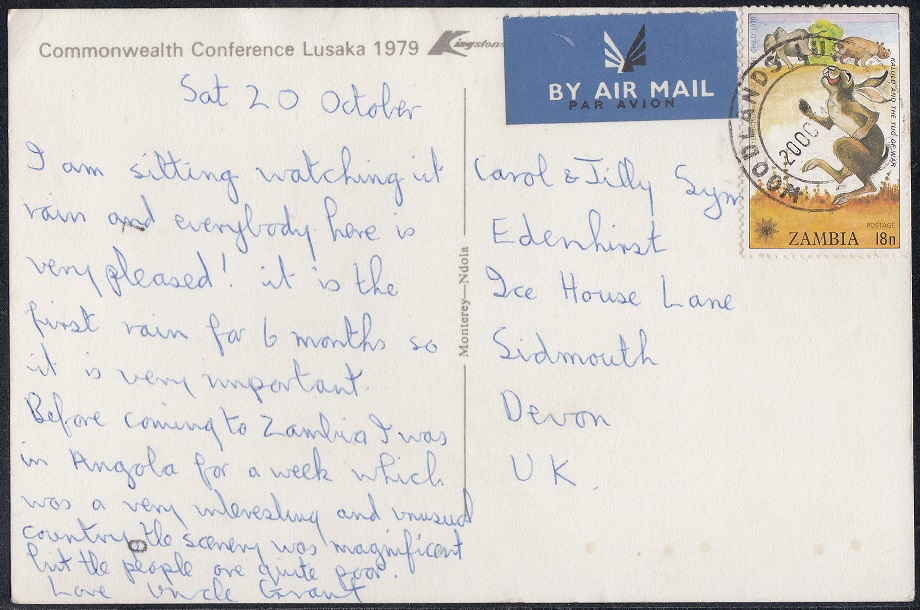 Commonwealth Conference Lusaka 1979
Kingstons
BY AIR MAIL
PAR AVION
KALULU AND THE TUG OF WAR
POSTAGE
ZAMBIA 18n
WOODLANDS LUS
20 OC
Sat 20 October
I am sitting watching it
rain and everybody here is
very pleased! it is the
first rain for 6 months so
it is very important.
Before coming to Zambia I was
in Angola for a week which
was a very interesting and unusual
country the scenery was magnificent
but the people are quite poor.
Love Uncle Grant
Monterey—Ndola
Carol & Jilly Sym
Edenhirst
Ice House Lane
Sidmouth
Devon
UK.